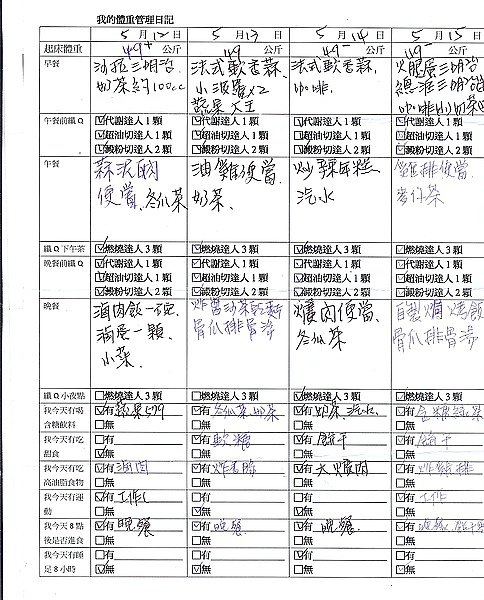 我的體重管理日記
5 月 12 日 5 月 13 日 5 月 14 日 5 月 15 日
起床體重 49+ 公斤 49 公斤 49- 公斤 49- 公斤
早餐 沙拉三明治. 法式軟香蒜. 法式軟香蒜. 火腿蛋三明治
奶茶約100cc 小波蘿x2 咖啡. 三明治
蔬果大王
午餐前纖Q ☑代謝達人 1 顆 ☑代謝達人 1 顆 ☑代謝達人 1 顆 ☑代謝達人 1 顆
☑超油切達人 1 顆 ☑超油切達人 1 顆 ☑超油切達人 1 顆 ☑超油切達人 1 顆
☑澱粉達人 2 顆 ☑澱粉達人 2 顆 ☑澱粉達人 2 顆 ☑澱粉達人 2 顆
午餐 蒜泥肉 油雞便當. 炒辣年糕 雞排便當.
便當.冬瓜茶 奶茶. 汽水 麥仔茶
纖Q下午茶 ☑燃燒達人 3 顆 ☑燃燒達人 3 顆 ☑燃燒達人 3 顆 ☑燃燒達人 3 顆
晚餐前纖Q ☑代謝達人 1 顆 ☑代謝達人 1 顆 ☑代謝達人 1 顆 ☑代謝達人 1 顆
☑超油切達人 1 顆 ☑超油切達人 1 顆 ☑超油切達人 1 顆 ☑超油切達人 1 顆
☑澱粉切達人 2 顆 ☑澱粉切達人 2 顆 ☑澱粉切達人 2 顆 ☑澱粉切達人 2 顆
晚餐 滷肉飯一碗. 炸醬 爌肉便當. 自製焗烤飯
滷蛋一顆. 骨瓜排骨湯 冬瓜茶 骨瓜排骨湯
小菜.
纖Q小夜點 ☐燃燒達人 3 顆 ☐燃燒達人 3 顆 ☐燃燒達人 3 顆 ☐燃燒達人 3 顆
我今天有喝 ☑有 蔬果579 ☑有 冬瓜茶.奶茶 ☑有 奶茶.汽水. ☑有
含糖飲料 ☐無 ☐無 ☐無 ☐無
我今天有吃 ☐有 ☑有 軟糖 ☑有 餅干 ☑有 餅干
甜食 ☑無 ☐無 ☐無 ☐無
我今天有吃 ☑有 滷肉 ☑有 ☑有 大爌肉 ☑有 炸雞排
高油脂食物 ☐無 ☐無 ☐無 ☐無
我今天有運 ☑有 工作 ☐有 ☐有 ☑有 工作
動 ☐無 ☑無 ☑無 ☐無
我今天 8 點 ☑有 晚餐 ☑有 晚餐. ☑有 晚餐. ☑有 晚餐.
後是否進食 ☐無 ☐無 ☐無 ☐無
我今天有睡 ☐有 ☐有 ☐有 ☐有
足 8 小時 ☑無 ☑無 ☑無 ☑無